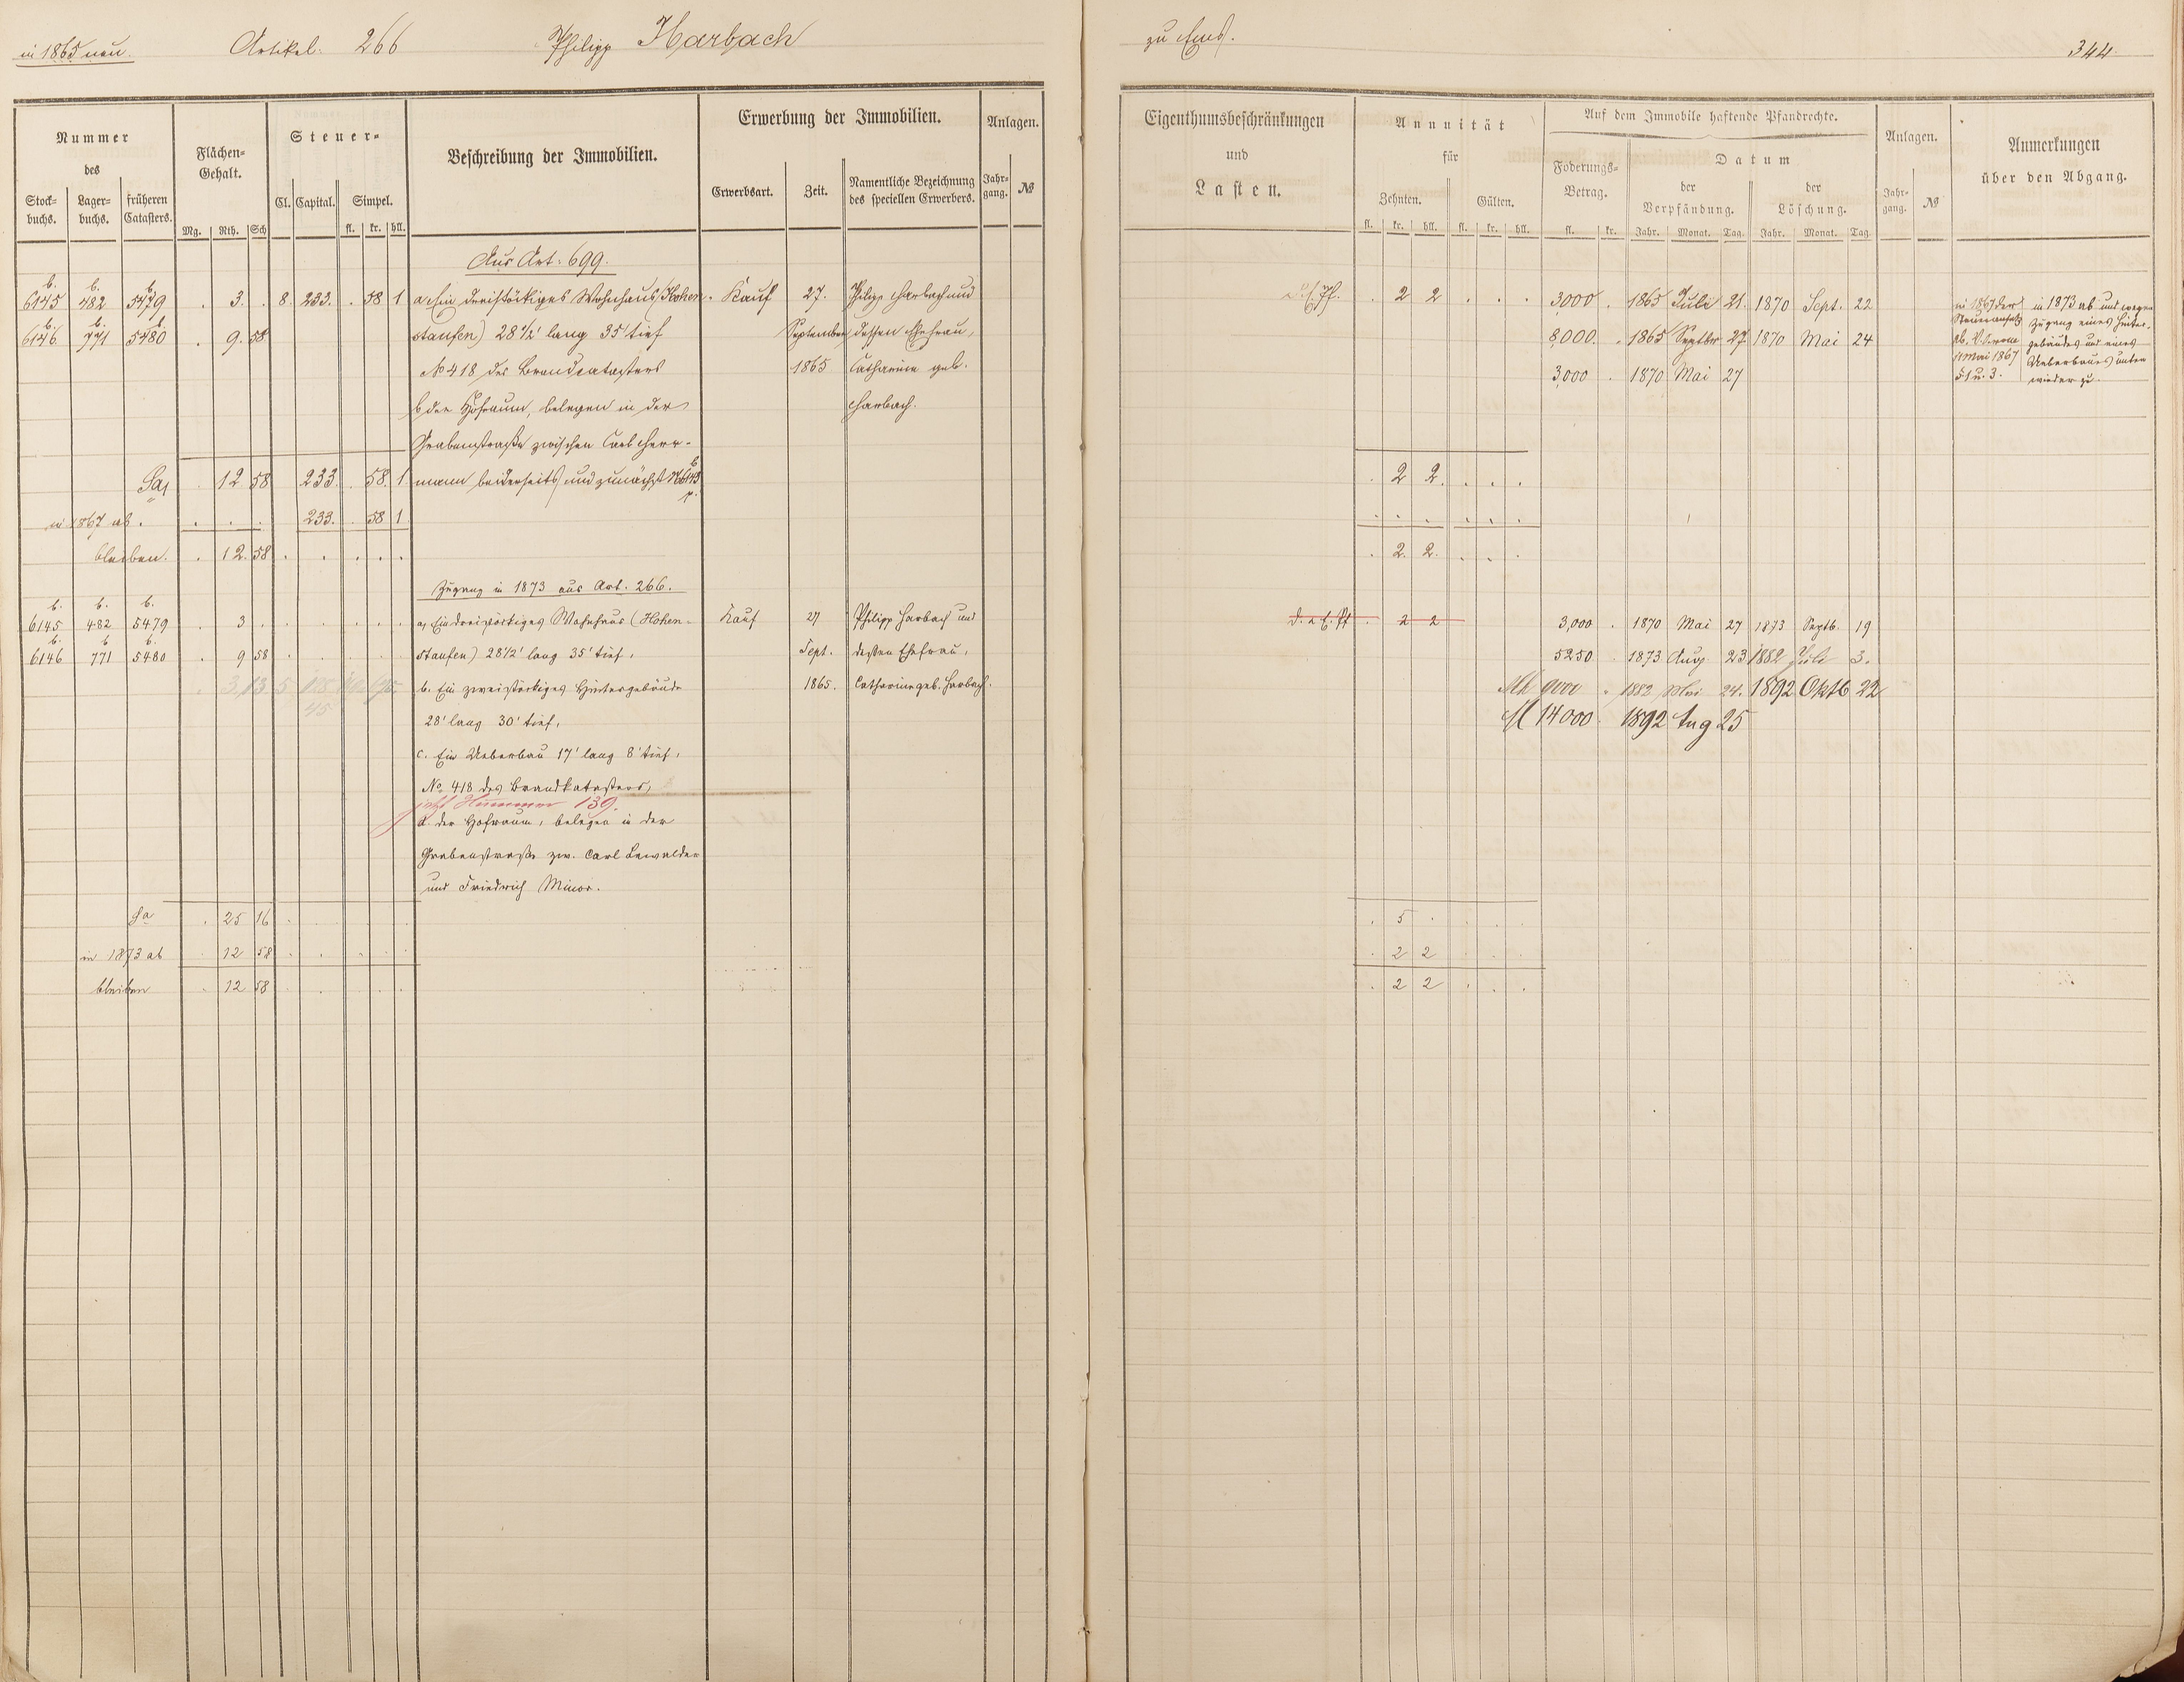 in 1865 neu. Artikel. 266 Philipp Harbach zu Ems. 344
Nummer des
Stockbuchs. Lagerbuchs. früheren Catasters.
Flächen-Gehalt.
Mg. Rth. Sch
Steuer-
Cl. Capital. Simpel.
fl. kr. hll.
Beschreibung der Immobilien.
Erwerbung der Immobilien.
Erwerbsart. Zeit. Namentliche Bezeichnung des speciellen Erwerbers.
Anlagen.
Jahrgang. №
Eigenthumsbeschränkungen
und
Lasten.
Annuität
für
Zehnten. Gülten.
fl. kr. hll. fl. kr. hll.
Auf dem Immobile haftende Pfandrechte.
Foderungs-Betrag.
fl. kr.
Datum
der Verpfändung. der Löschung.
Jahr. Monat. Tag. Jahr. Monat. Tag
Anlagen.
Jahrgang. №
Anmerkungen
über den Abgang.
Aus Art. 699.
b. b. b.
6145 482 5479 . 3. . 8. 233. . 58 1 a, Ein dreistöckiges Wohnhaus (Hohen- Kauf 27. Philipp Harbach und
b. b. b.
6146 771 5480 . 9. 58 staufen) 28 1/2' lang 35' tief September dessen Ehefrau,
№ 418 des Brandcatasters 1865 Catharine geb.
b, der Hofraum, belegen in der Harbach.
Grabenstraße zwischen Carl Herr-
Sa, . 12 58 233. . 58. 1. mann beiderseits und zunächst № 6143 b
p.
in 1867 ab. . . . 233. . 58 1
bleiben. . 12. 58 . . . . .
Zugang in 1873 aus Art. 266.
b. b. b.
6145 482 5479 . 3 . . . . . . a, Ein dreistöckiges Wohnhaus (Hohen- Kauf 27 Philipp Harbach und
b. b b.
6146 771 5480 . 9 58 . . . . . staufen) 28 1/2' lang 35' tief, Sept. dessen Ehefrau,
b. Ein zweistöckiges Hintergebäude 1865. Catharine geb. Harbach.
45
28' lang 30' tief,
c. Ein Ueberbau 17' lang 8' tief,
№ 418 des Brandkatasters,
jetzt Nummer 139.
d. der Hofraum, belegen in der
Grabenstraße zw. Carl Lewalder
und Friedrich Minor.
Sa . 25 16
in 1873 ab . 12 58
bleiben . 12 58
. 2 2 . . . 3000 . 1865 Juli 21. 1870 Sept. 22
8,000. . 1865 Septbr. 27 1870 Mai 24
3,000 . 1870 Mai 27
in 1867 der
Steueransatz
ab. V.
Mai 1867
§ 1 u. 3.
in 1873 ab und wegen
Zugang eines Hinter-
gebäudes und eines
Ueberbaues unten
wieder zu.
. 2 2. . . .
. . . . . .
. 2. 2. . . .
d. a. E. Pf . 2 2 3,000 . 1870 Mai 27 1873 Septb. 19
5250 . 1873 Aug. 23 1882 Juli 3.
Mk 9000 . 1882 Mai 24. 1892 Oktb 22
M 14000. 1892 Aug 25
. 5 . . . .
. 2 2 . . .
. 2 2 . . .